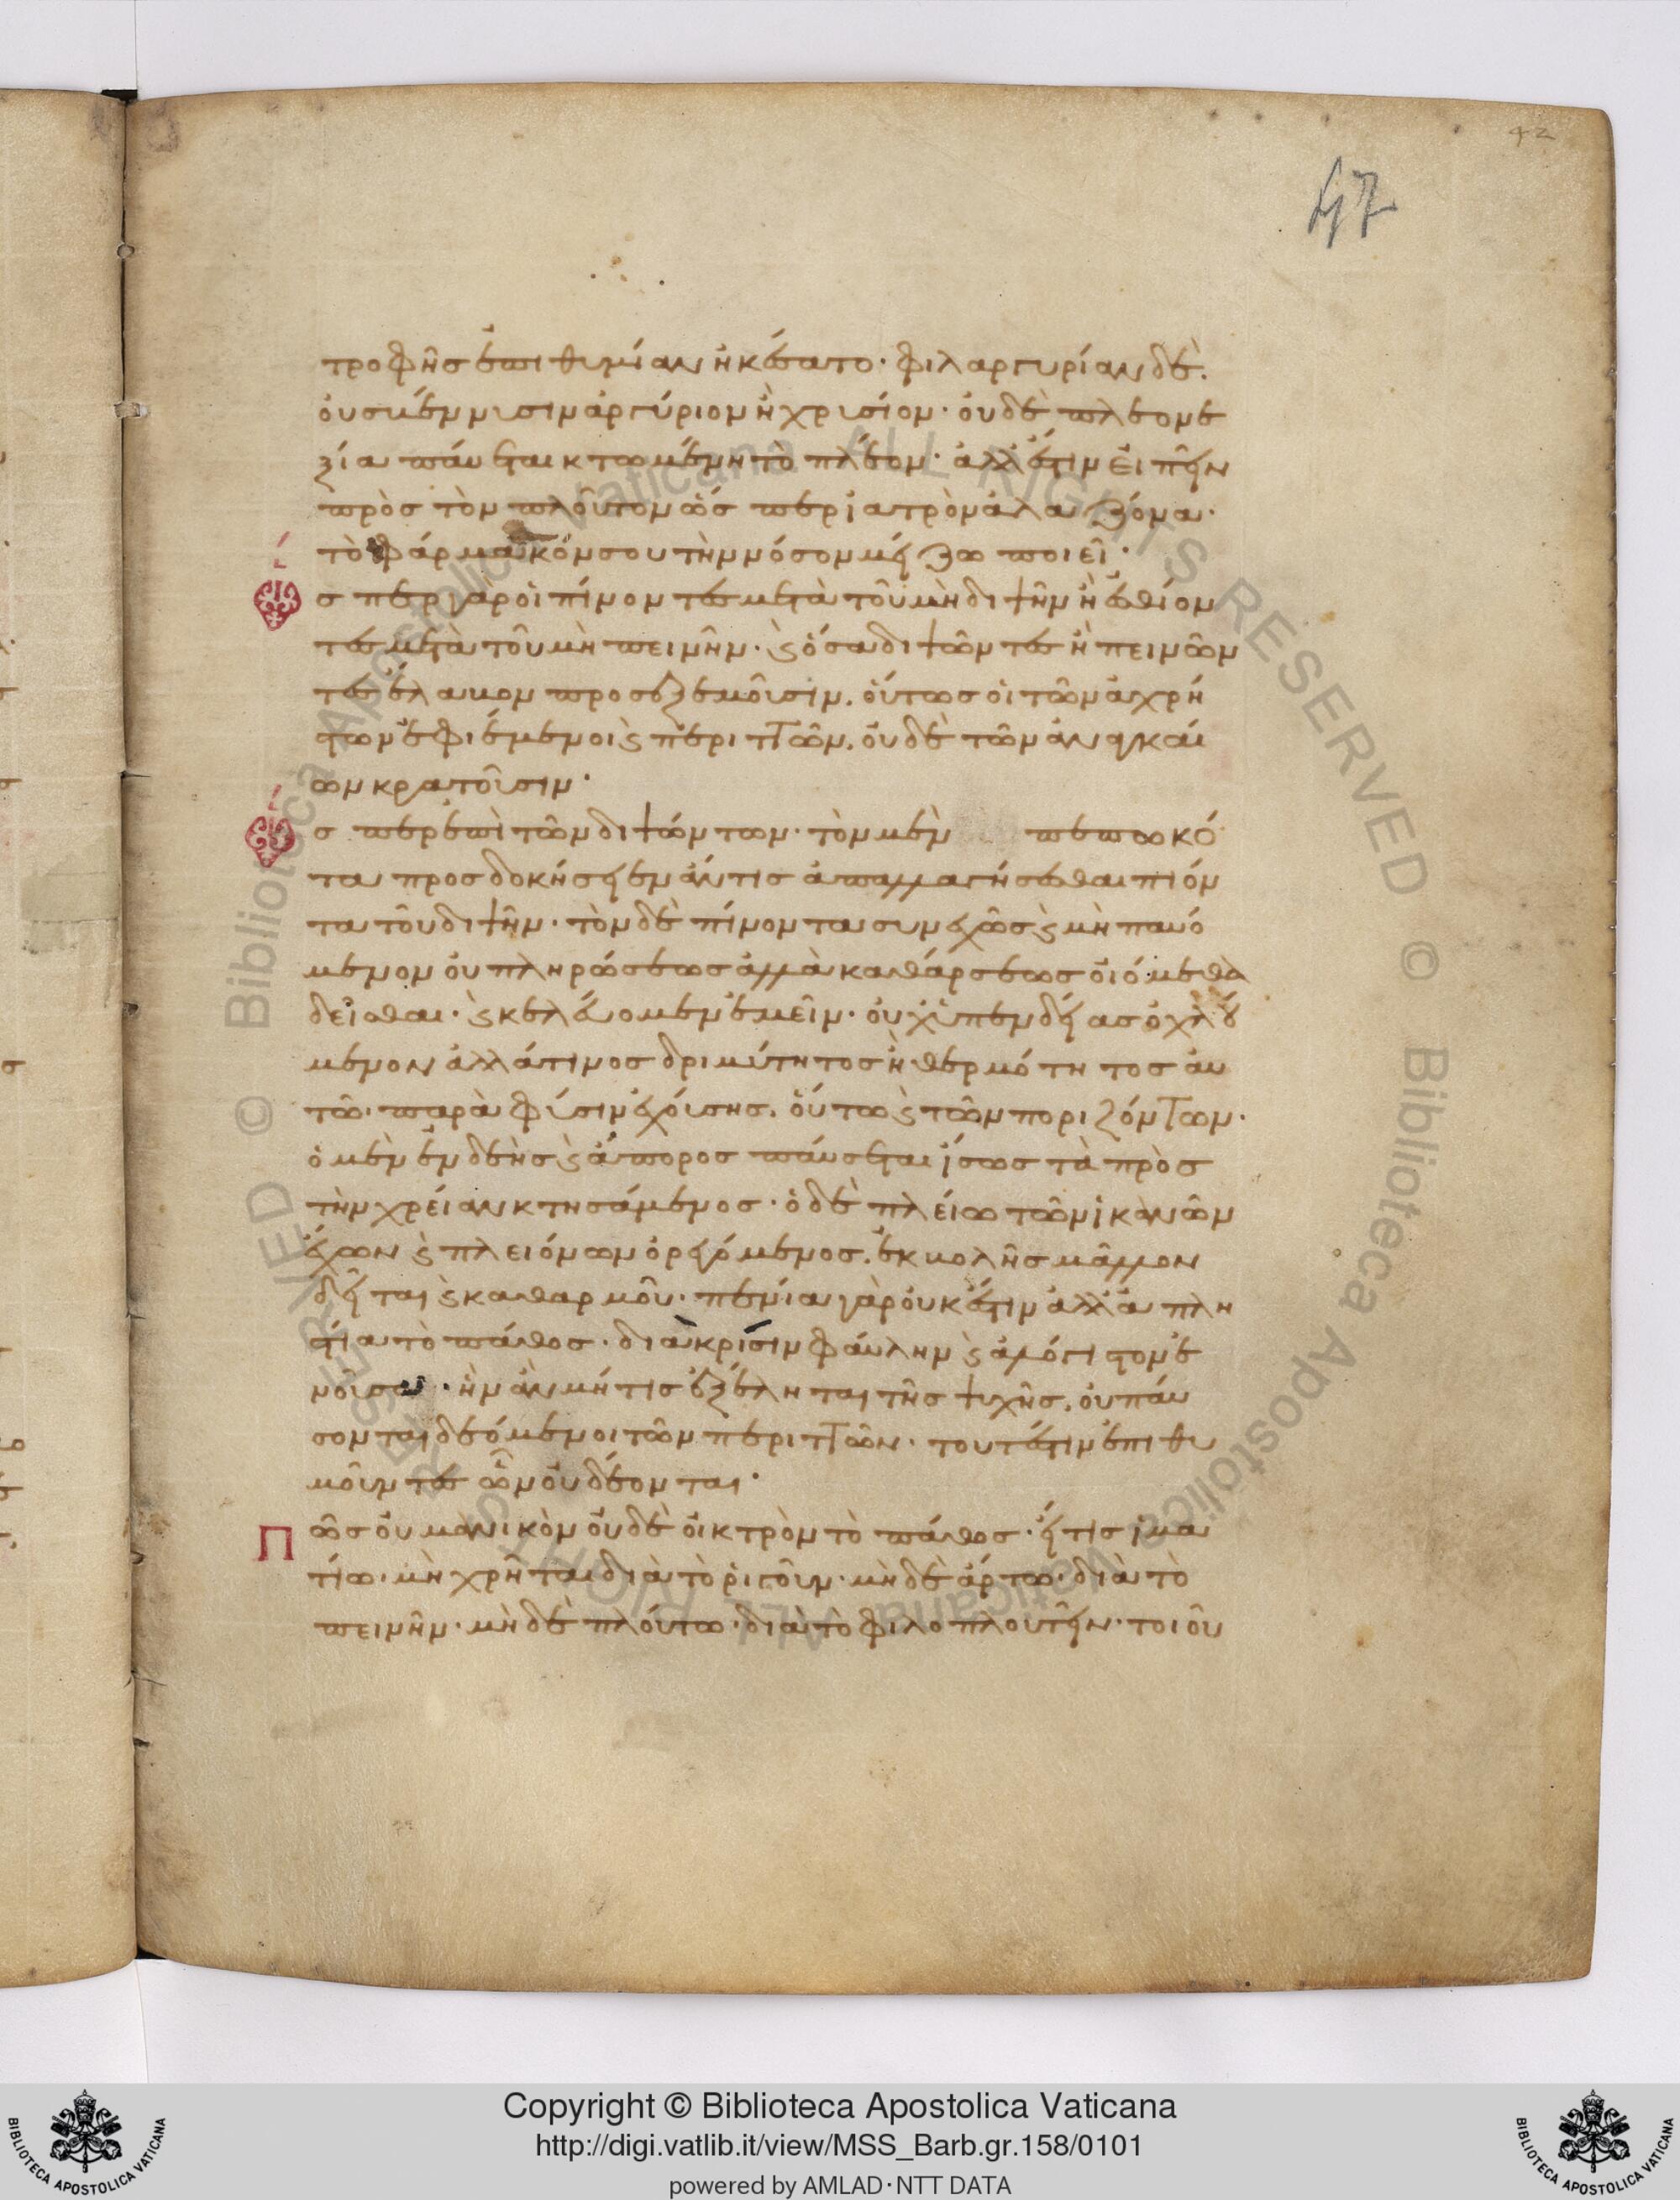 42
47
τροφῆς ἐπιθυμίαν ἠκέσατο· φιλαργυρίαν δὲ.
οὐ σβέννυσιν ἀργύριον ἢ χρυσίον· οὐδὲ πλεονε
ξία παύεται κτωμένη τὸ πλέον· ἀλλ' ἔστιν εἰπεῖν
πρὸς τὸν πλοῦτον ὥσπερ ἰατρὸν ἀλαζόνα·
τὸ φάρμακόν σου τὴν νόσον μείζω ποιεῖ·
Ὥσπερ γὰρ οἱ πίνοντες μετὰ τοῦ μὴ διψῆν ἢ ἐσθίον
τες μετὰ τοῦ μὴ πεινῆν· ϗ ὅσα διψῶντες ἢ πεινῶν
τες ἔλαβον προσεξεμοῦσιν. οὕτως οἱ τῶν ἀχρή
στων ἐφιέμενοι ϗ περιττῶν. οὐδὲ τῶν ἀναγκαί
ων κρατοῦσιν·
Ὥσπερ ἐπὶ τῶν διψώντων· τὸν μὲν πεπωκό
τα προσδοκήσειεν ἄν τις ἀπαλλαγήσεσθαι πιόν
τα τοῦ διψῆν· τὸν δὲ πίνοντα συνεχῶς ϗ μὴ παυό
μενον οὐ πληρώσεως ἀλλὰ καθάρσεως οἰόμεθα
δεῖσθαι· ϗ κελεύομεν ἐμεῖν· οὐχ ὑπ' ἐνδείας ὀχλού
μενον ἀλλά τινος δριμύτητος ἢ θερμότητος αὐ
τῶ· παρὰ φύσιν ἐχούσης. οὕτω ϗ τῶν ποριζόντων·
ὁ μὲν ἐνδεὴς ϗ ἄπορος παύσεται ἴσως τὰ πρὸς
τὴν χρείαν κτησάμενος· ὁ δὲ πλείω τῶν ἱκανῶν
ἔχων ϗ πλειόνων ὀρεγόμενος. ἐκβολῆς μᾶλλον
δεῖται ϗ καθαρμοῦ· πενία γὰρ οὐκ ἔστιν ἀλλ' ἀπλη
στία τὸ πάθος· διὰ κρίσιν φαύλην ϗ ἀλόγιστον ἐ
νοῦσαν· ἣν ἂν μή τις ἐξέληται τῆς ψυχῆς. οὐ παύ
σονται δεόμενοι τῶν περιττῶν· τουτέστιν ἐπιθυ
μοῦντες ὧν οὐ δέονται·
Πῶς οὐ μανικὸν οὐδὲ οἰκτρὸν τὸ πάθος· εἴ τις ἱμα
τίω· μὴ χρῆται διὰ τὸ ῥιγοῦν· μὴ δὲ ἄρτω· διὰ τὸ
πεινῆν· μὴ δὲ πλούτω· διὰ τὸ φιλοπλουτεῖν· τοιοῦ
Copyright © Biblioteca Apostolica Vaticana
http://digi.vatlib.it/view/MSS_Barb.gr.158/0101
powered by AMLAD·NTT DATA